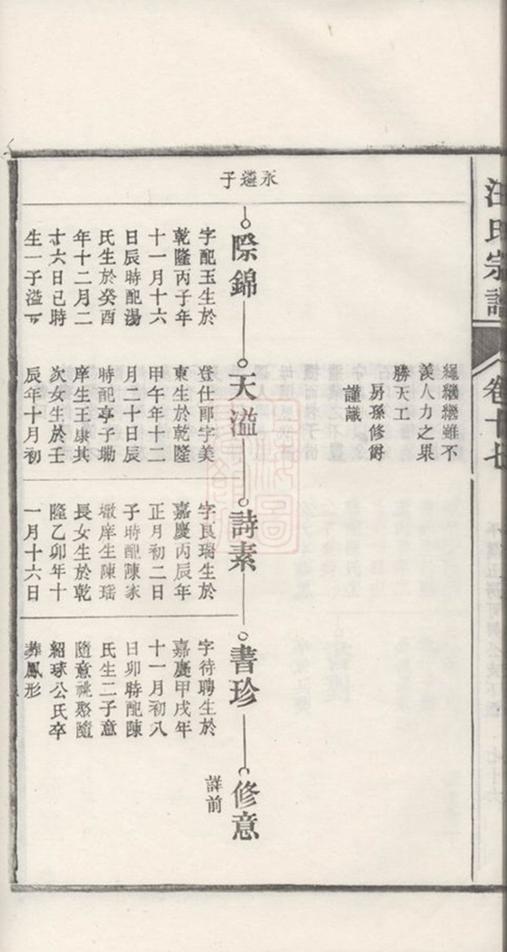 汪氏宗譜
卷十七
繩繼繼雖不
羨人力之果
勝天工
昇孫修爵
謹識
永遴子
際錦
字配玉生於
乾隆丙子年
十一月十六
日辰時配湯
氏生於癸酉
年十二月二
十六日巳時
生一子溢
天溢
登仕郎字美
東生於乾隆
甲午年十二
月二十日辰
時配亭子坳
庠生王康其
次女生於壬
辰年十月初
詩素
字良瑞生於
嘉慶丙辰年
正月初二日
子時配陳家
墩庠生陳瑶
長女生於乾
隆乙卯年十
一月十六日
書珍
字待聘生於
嘉慶甲戌年
十一月初八
日卯時配陳
氏生二子意
隨意祧聚隨
紹球公氏卒
葬鳳形
修意
詳前